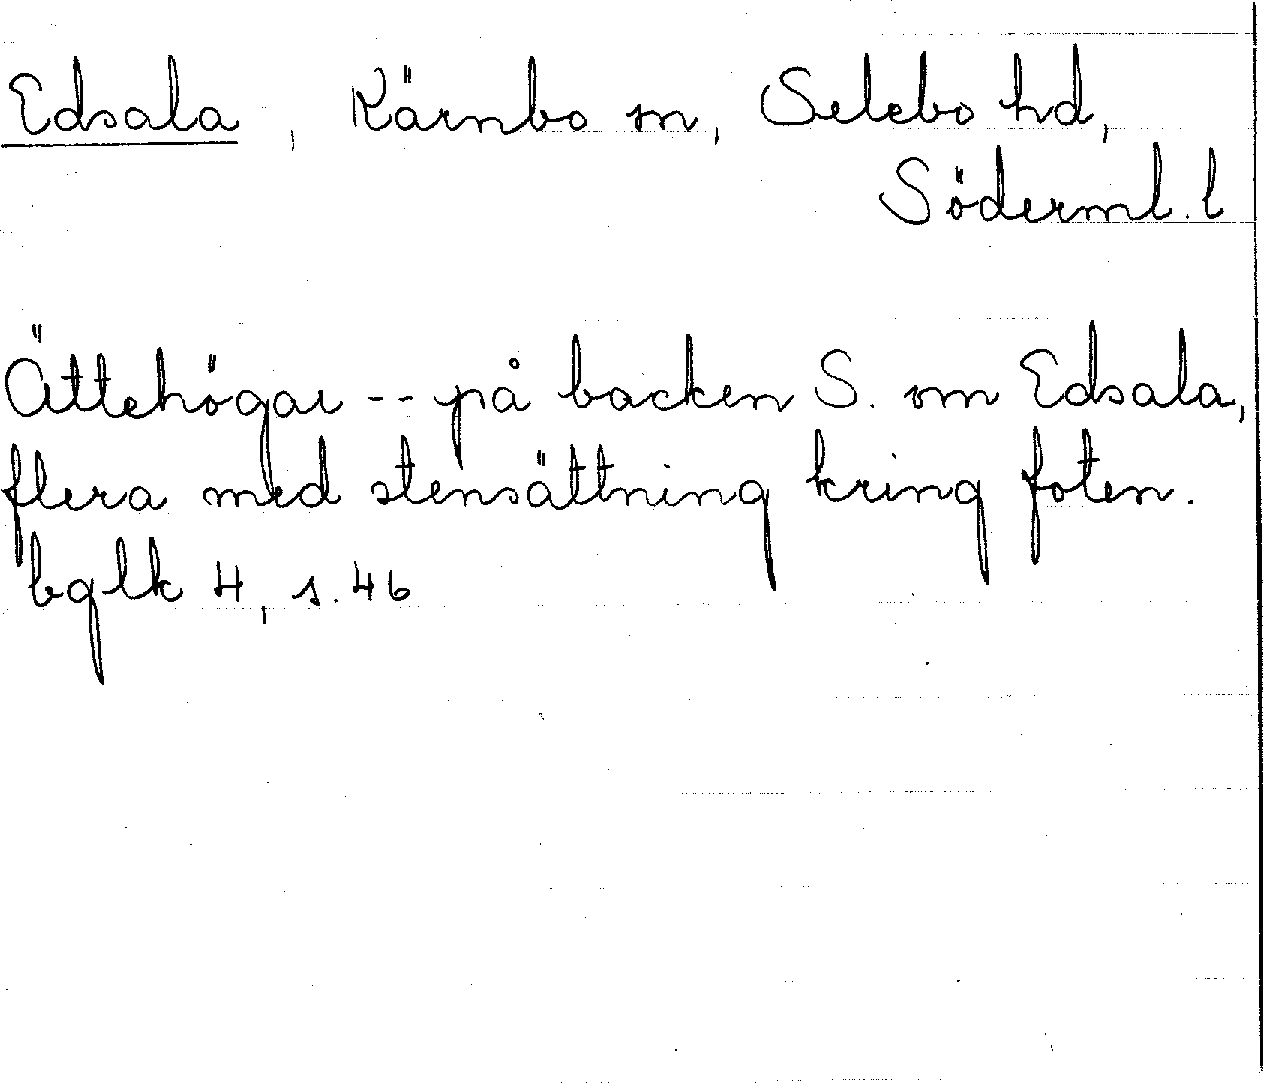 Edsala, Kärnbo sn, Selebo hd,
Söderml. l
Ättehögar -- på backen S. om Edsala,
flera med stensättning kring foten.
bglk 4, s. 46